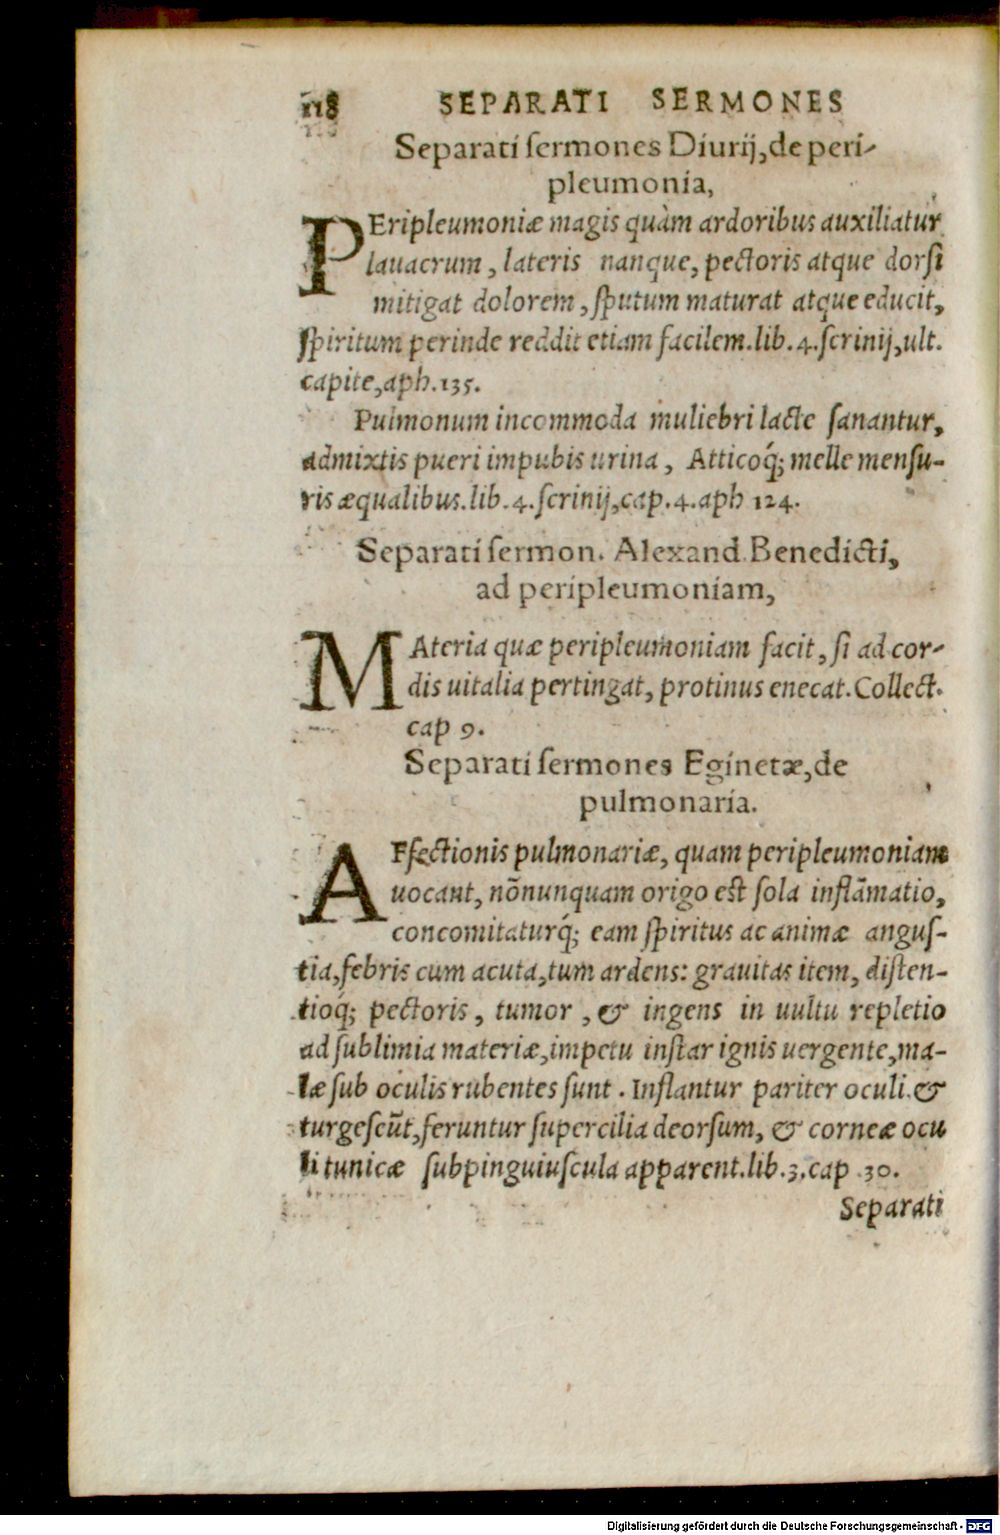 118 SEPARATI SERMONES
Separati sermones Diurij, de peri-
pleumonia,
PEripleumoniæ magis quàm ardoribus auxiliatur
lauacrum, lateris nanque, pectoris atque dorsi
mitigat dolorem, sputum maturat atque educit,
spiritum perinde reddit etiam facilem. lib. 4. scrinij, ult.
capite, aph. 135.
Pulmonum incommoda muliebri lacte sanantur,
admixtis pueri impubis urina, Atticoq́; melle mensu-
ris æqualibus. lib. 4. scrinij, cap. 4. aph 124.
Separati sermon. Alexand. Benedicti,
ad peripleumoniam,
MAteria quæ peripleumoniam facit, si ad cor-
dis uitalia pertingat, protinus enecat. Collect.
cap 9.
Separati sermones Eginetæ, de
pulmonaria.
AFfectionis pulmonariæ, quam peripleumoniam
uocant, nōnunquam origo est sola inflāmatio,
concomitaturq́; eam spiritus ac animæ angus-
tia, febris cum acuta, tum ardens: grauitas item, disten-
tioq́; pectoris, tumor, & ingens in uultu repletio
ad sublimia materiæ, impetu instar ignis uergente, ma-
læ sub oculis rubentes sunt. Inflantur pariter oculi. &
turgescūt, feruntur supercilia deorsum, & corneæ ocu
li tunicæ subpinguiuscula apparent. lib. 3. cap. 30.
Separati
Digitalisierung gefördert durch die Deutsche Forschungsgemeinschaft - DFG